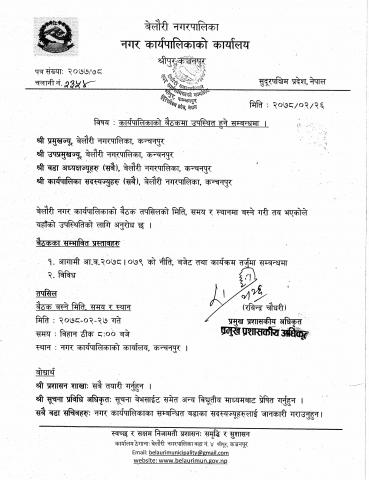 बेलौरी नगरपालिका
नगर कार्यपालिकाको कार्यालय
श्रीपुर, कञ्चनपुर
पत्र संख्याः २०७७/७८
चलानी नं. २३५४
सुदूरपश्चिम प्रदेश, नेपाल
मिति : २०७८/०२/२६
विषय : कार्यपालिकाको बैठकमा उपस्थित हुने सम्बन्धमा ।
श्री प्रमुखज्यू, बेलौरी नगरपालिका, कन्चनपुर
श्री उपप्रमुखज्यू, बेलौरी नगरपालिका, कन्चनपुर
श्री वडा अध्यक्षज्यूहरु (सबै), बेलौरी नगरपालिका, कन्चनपुर
श्री कार्यपालिका सदस्यज्यूहरु (सबै), बेलौरी नगरपालिका, कन्चनपुर
बेलौरी नगर कार्यपालिकाको बैठक तपसिलको मिति, समय र स्थानमा बस्ने गरी तय भएकोले
यहाँको उपस्थितिको लागि अनुरोध छ ।
बैठकका सम्भावित प्रस्तावहरु
१. आगामी आ.व.२०७८।०७९ को नीति, बजेट तथा कार्यक्रम तर्जुमा सम्बन्धमा
२. विविध
तपसिल
बैठक बस्ने मिति, समय र स्थान
मिति : २०७८-०२-२७ गते
समय : बिहान ठीक ८:०० बजे
स्थान : नगर कार्यपालिकाको कार्यालय, कन्चनपुर ।
(रबिन्द्र चौधरी)
प्रमुख प्रशासकीय अधिकृत
प्रमुख प्रशासकीय अधिकृत
बोधार्थ
श्री प्रशासन शाखाः सबै तयारी गर्नुहुन ।
श्री सूचना प्रविधि अधिकृतः सूचना वेभसाईट समेत अन्य विधुतीय माध्यमबाट प्रेषित गर्नुहुन ।
सबै वडा सचिवहरुः नगर कार्यपालिकाका सम्बन्धित वडाका सदस्यज्यूहरुलाई जानकारी गराउनुहुन।
स्वच्छ र सक्षम निजामती प्रशासनः समृद्धि र सुशासन
कार्यालय ठेगानाः बेलौरी नगरपालिका वडा नं ४ श्रीपुर, कञ्चनपुर
Email: belaurimunicipality@gmail.com
website: www.belaurimun.gov.np